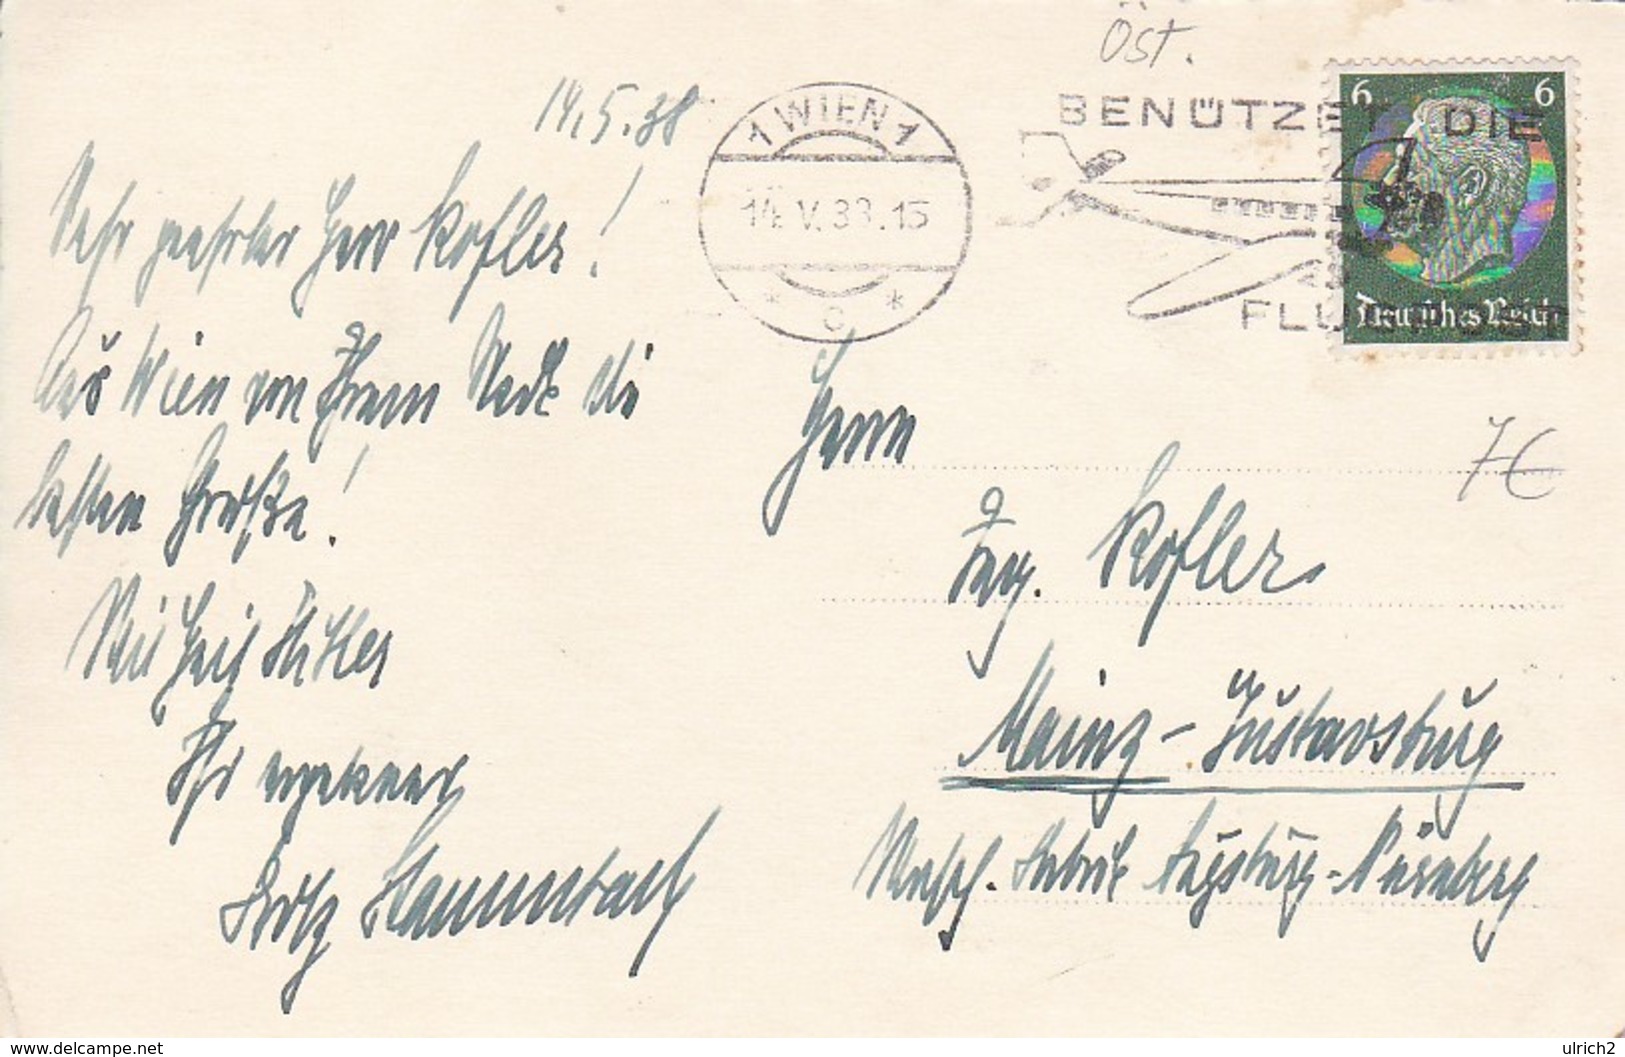 Öst.
14.5.38
1 WIEN 1
14. V. 38. 15
* c *
BENÜTZET DIE
FLU
6 6
Deutsches Reich
7€
Sehr geehrter Herr Kofler!
Aus Wien von Ihrem die
besten Grüße!
Mit Heil Hitler
Ihr ergebener
Fritz Stammbach
Herrn
Ing. Kofler
Mainz-Gustavsburg
Masch. Fabrik Augsburg-Nürnberg
www.delcampe.net
ulrich2